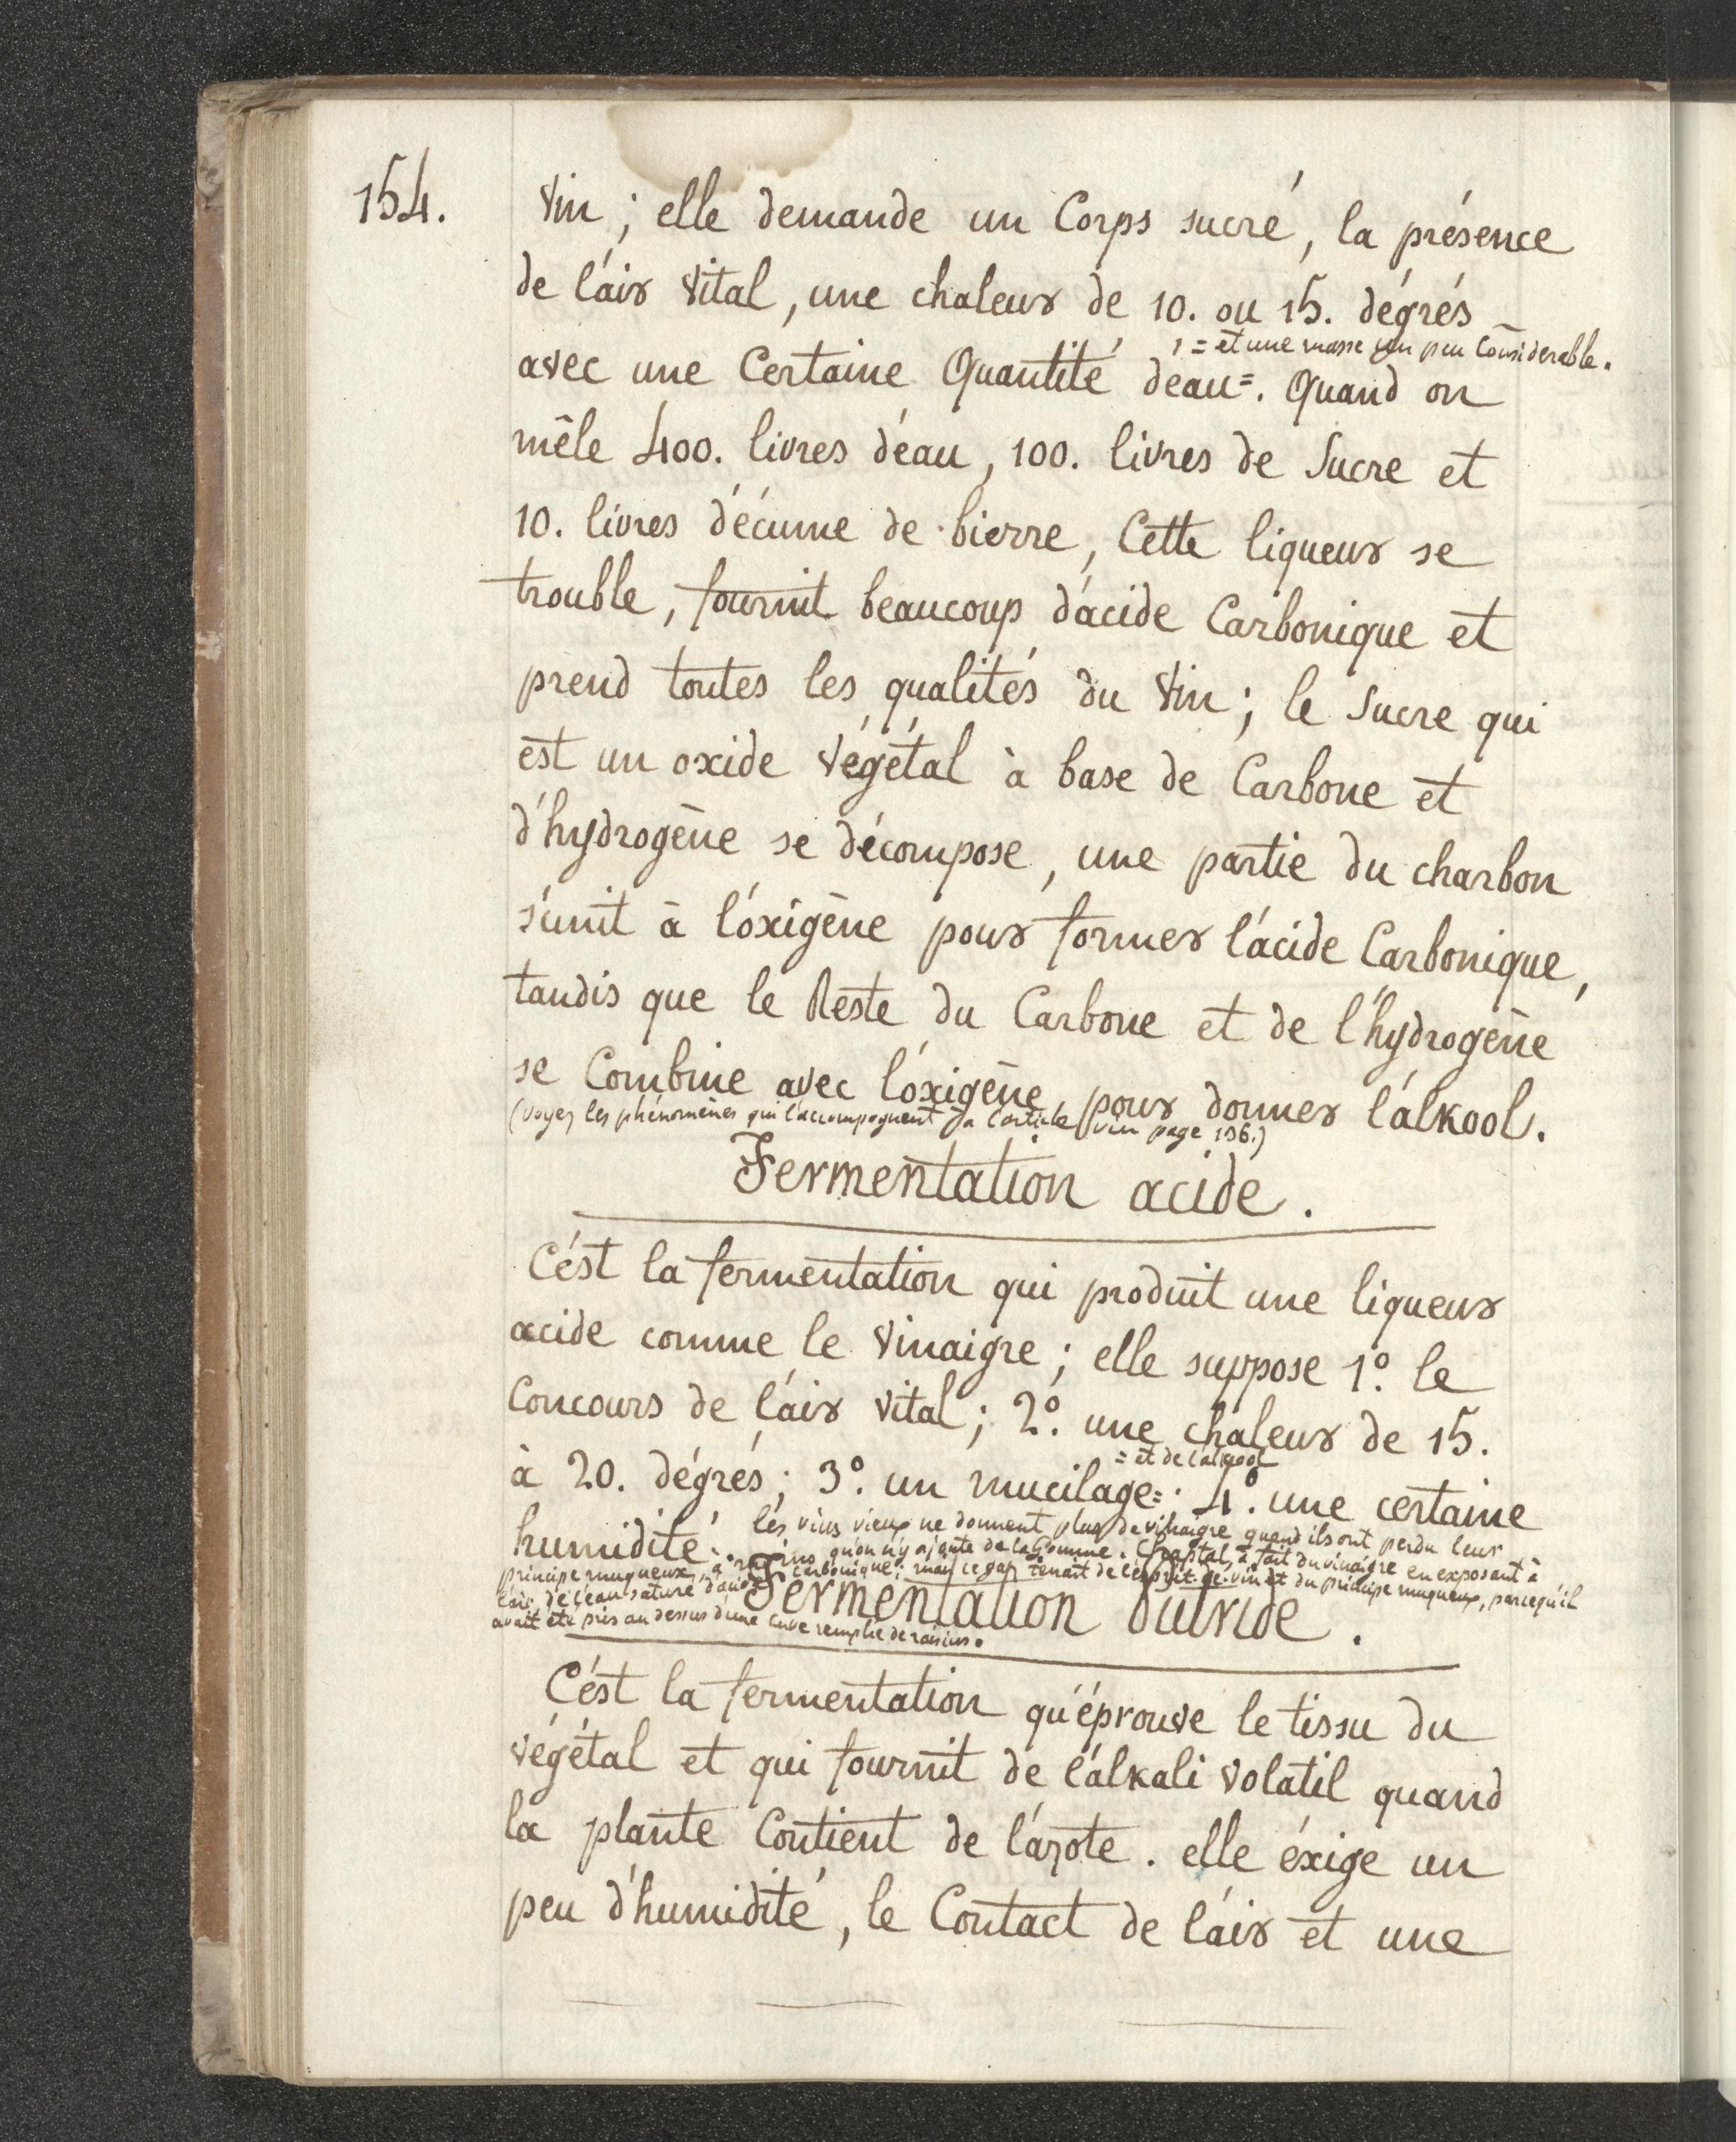 154.
Vin ; elle demande un Corps sucré, la présence
de l'air Vital, une chaleur de 10. ou 15. dégrés
, = et une masse un peu Considerable.
avec une Certaine Quantité d'eau =. Quand on
mêle 400. livres d'eau, 100. livres de Sucre et
10. livres d'écume de bierre, Cette liqueur se
trouble, fournit beaucoup d'acide Carbonique et
prend toutes les qualités du Vin ; le Sucre qui
est un oxide Végétal à base de Carbone et
d'hydrogène se décompose, une partie du charbon
s'unit à l'oxigène pour former l'acide Carbonique,
tandis que le Reste du Carbone et de l'hydrogène
se Combine avec l'oxigène, pour donner l'alkool.
(voyez les phénomènes qui l'accompagnent à l'article vin page 196.)
Fermentation acide.
C'est la fermentation qui produit une liqueur
acide comme le Vinaigre ; elle suppose 1°. le
Concours de l'air Vital ; 2°. une chaleur de 15.
= et de l'alkool
à 20. dégrés ; 3°. un mucilage = ; 4°. une certaine
humidité.
les vins vieux ne donnent plus de vinaigre quand ils ont perdu leur
principe muqueux, à moins qu'on n'y ajoute de la Gomme. Chaptal, a fait du vinaigre en exposant à
l'air, de l'eau saturé d'acide carbonique : mais ce gaz tenait de l'esprit-de-vin et du principe muqueux, parcequ'il
avait été pris au dessus d'une Cuve remplie de raisins.
Fermentation Putride.
C'est la fermentation qu'éprouve le tissu du
végétal et qui fournit de l'alkali Volatil quand
la plante Contient de l'azote. elle éxige un
peu d'humidité, le Contact de l'air et une